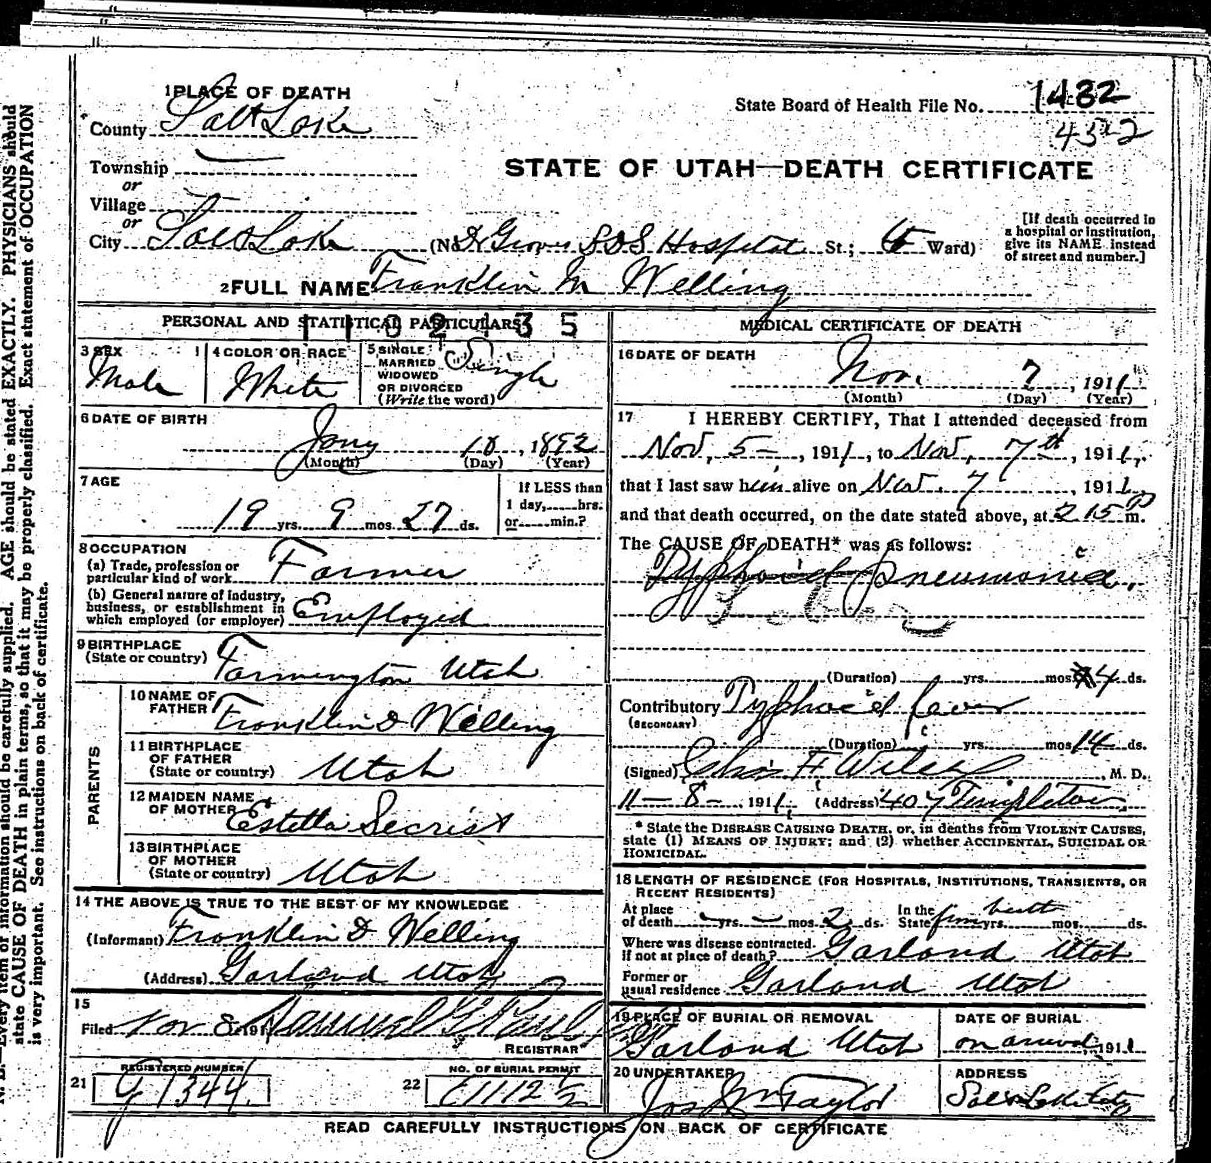 1 PLACE OF DEATH
State Board of Health File No. 1432
452
County Salt Lake
Township
or
STATE OF UTAH—DEATH CERTIFICATE
Village
or
City Salt Lake (No. Groves LDS Hospital St.; Ward)
[If death occurred in
a hospital or institution,
give its NAME instead
of street and number.]
2 FULL NAME Franklin M Welling
PERSONAL AND STATISTICAL PARTICULARS
3 SEX Male
4 COLOR OR RACE White
5 SINGLE MARRIED WIDOWED OR DIVORCED (Write the word) Single
6 DATE OF BIRTH
Jany 10, 1892
(Month) (Day) (Year)
7 AGE
19 yrs. 9 mos. 27 ds.
If LESS than
1 day, hrs.
or min.?
8 OCCUPATION
(a) Trade, profession or
particular kind of work Farmer
(b) General nature of industry,
business, or establishment in
which employed (or employer) Employed
9 BIRTHPLACE
(State or country) Farmington Utah
PARENTS
10 NAME OF
FATHER Franklin D Welling
11 BIRTHPLACE
OF FATHER
(State or country) Utah
12 MAIDEN NAME
OF MOTHER Estella Secrist
13 BIRTHPLACE
OF MOTHER
(State or country) Utah
14 THE ABOVE IS TRUE TO THE BEST OF MY KNOWLEDGE
(Informant) Franklin D Welling
(Address) Garland Utah
15
Filed Nov 8 191 Samuel G Paul
REGISTRAR
21 REGISTERED NUMBER 1344
22 NO. OF BURIAL PERMIT
MEDICAL CERTIFICATE OF DEATH
16 DATE OF DEATH
Nov. 7, 1911
(Month) (Day) (Year)
17 I HEREBY CERTIFY, That I attended deceased from
Nov, 5, 1911, to Nov, 7th, 1911,
that I last saw him alive on Nov. 7, 1911
and that death occurred, on the date stated above, at 2 15 P m.
The CAUSE OF DEATH* was as follows:
Typhoid pneumonia.
(Duration) yrs. mos. 4 ds.
Contributory Typhoid fever
(SECONDARY)
(Duration) yrs. mos. 14 ds.
(Signed) Chas F Wilcox, M. D.
11-8-, 1911 (Address) 407 Templeton
* State the DISEASE CAUSING DEATH, or, in deaths from VIOLENT CAUSES,
state (1) MEANS OF INJURY; and (2) whether ACCIDENTAL, SUICIDAL OR
HOMICIDAL.
18 LENGTH OF RESIDENCE (FOR HOSPITALS, INSTITUTIONS, TRANSIENTS, OR
RECENT RESIDENTS)
At place
of death yrs. mos. 2 ds. In the
State from birth yrs. mos. ds.
Where was disease contracted,
if not at place of death? Garland Utah
Former or
usual residence Garland Utah
19 PLACE OF BURIAL OR REMOVAL
Garland Utah
DATE OF BURIAL
on arrival, 1911
20 UNDERTAKER
Jos Wm Taylor
ADDRESS
Salt Lake City
READ CAREFULLY INSTRUCTIONS ON BACK OF CERTIFICATE
Every item of information should be carefully supplied. AGE should be stated EXACTLY. PHYSICIANS should
state CAUSE OF DEATH in plain terms, so that it may be properly classified. Exact statement of OCCUPATION
is very important. See instructions on back of certificate.